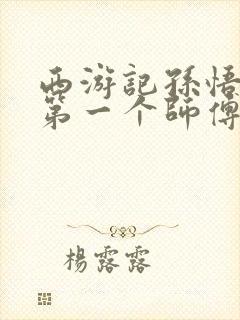 西游記孫悟
第一个師傅
楊露露